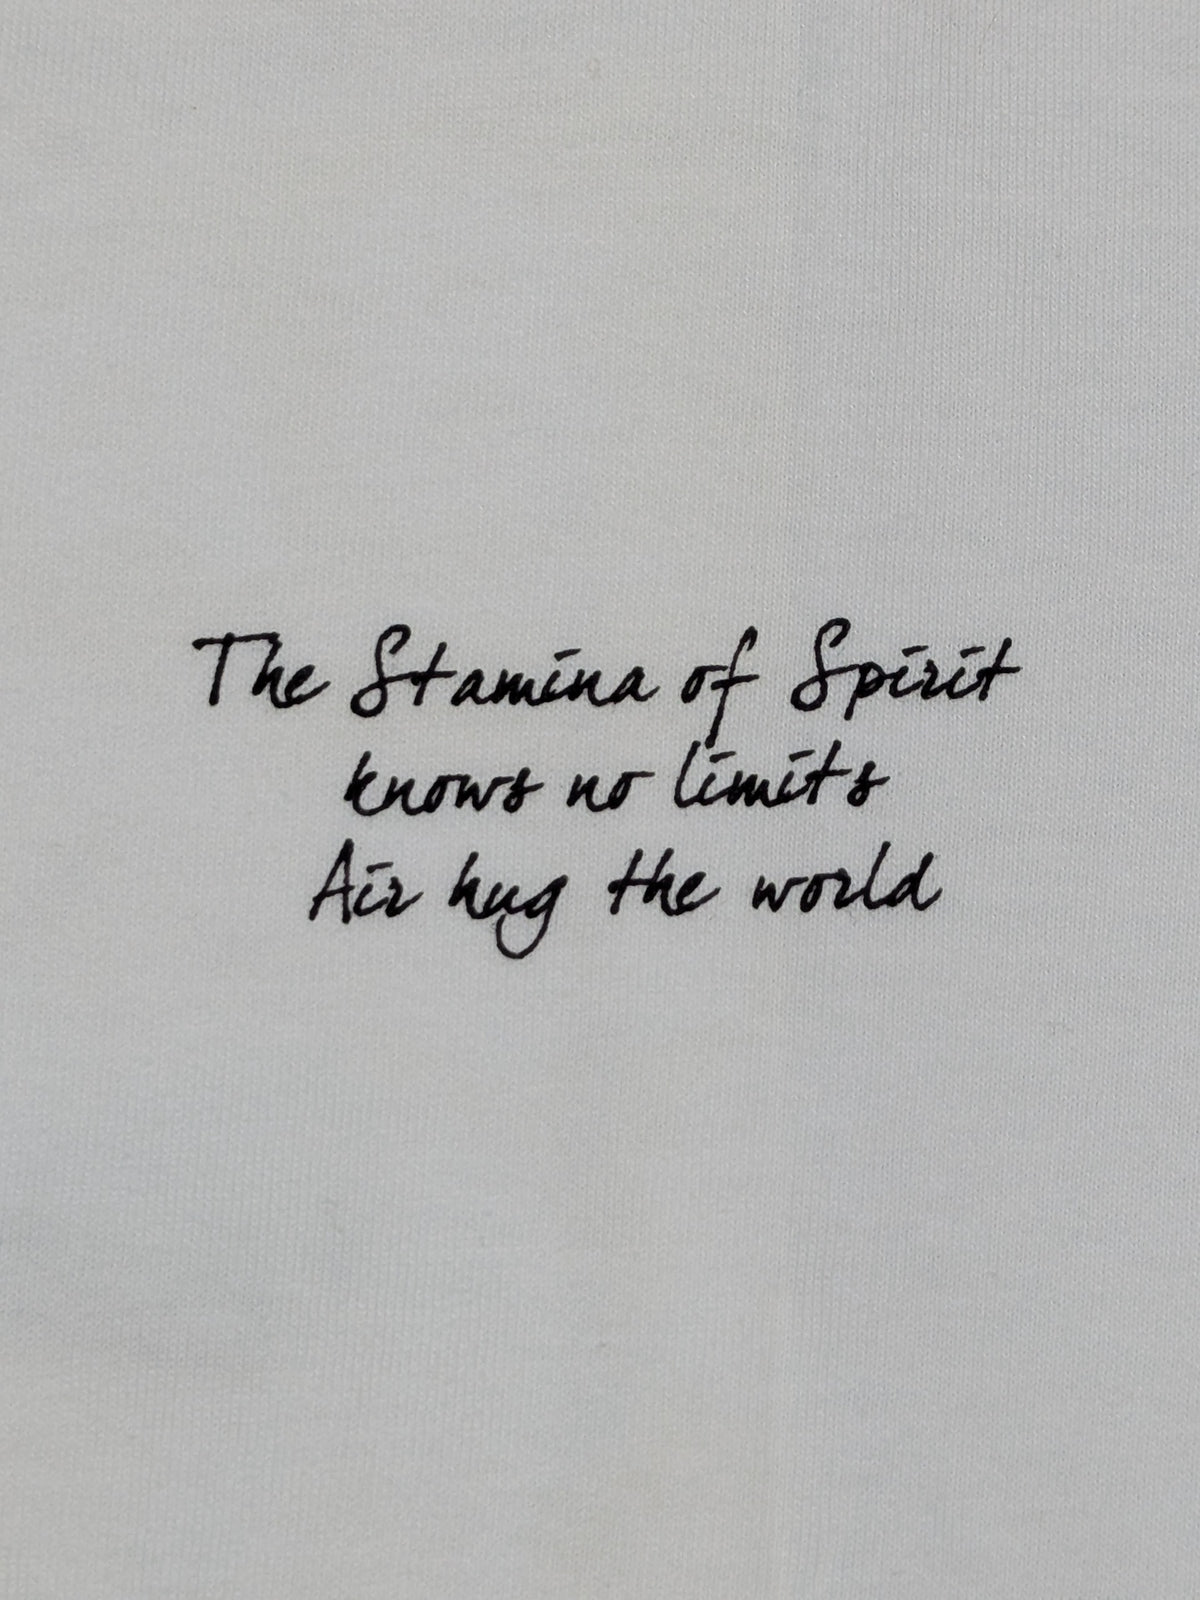 The Stamina of Spirit
knows no limits
Air hug the world